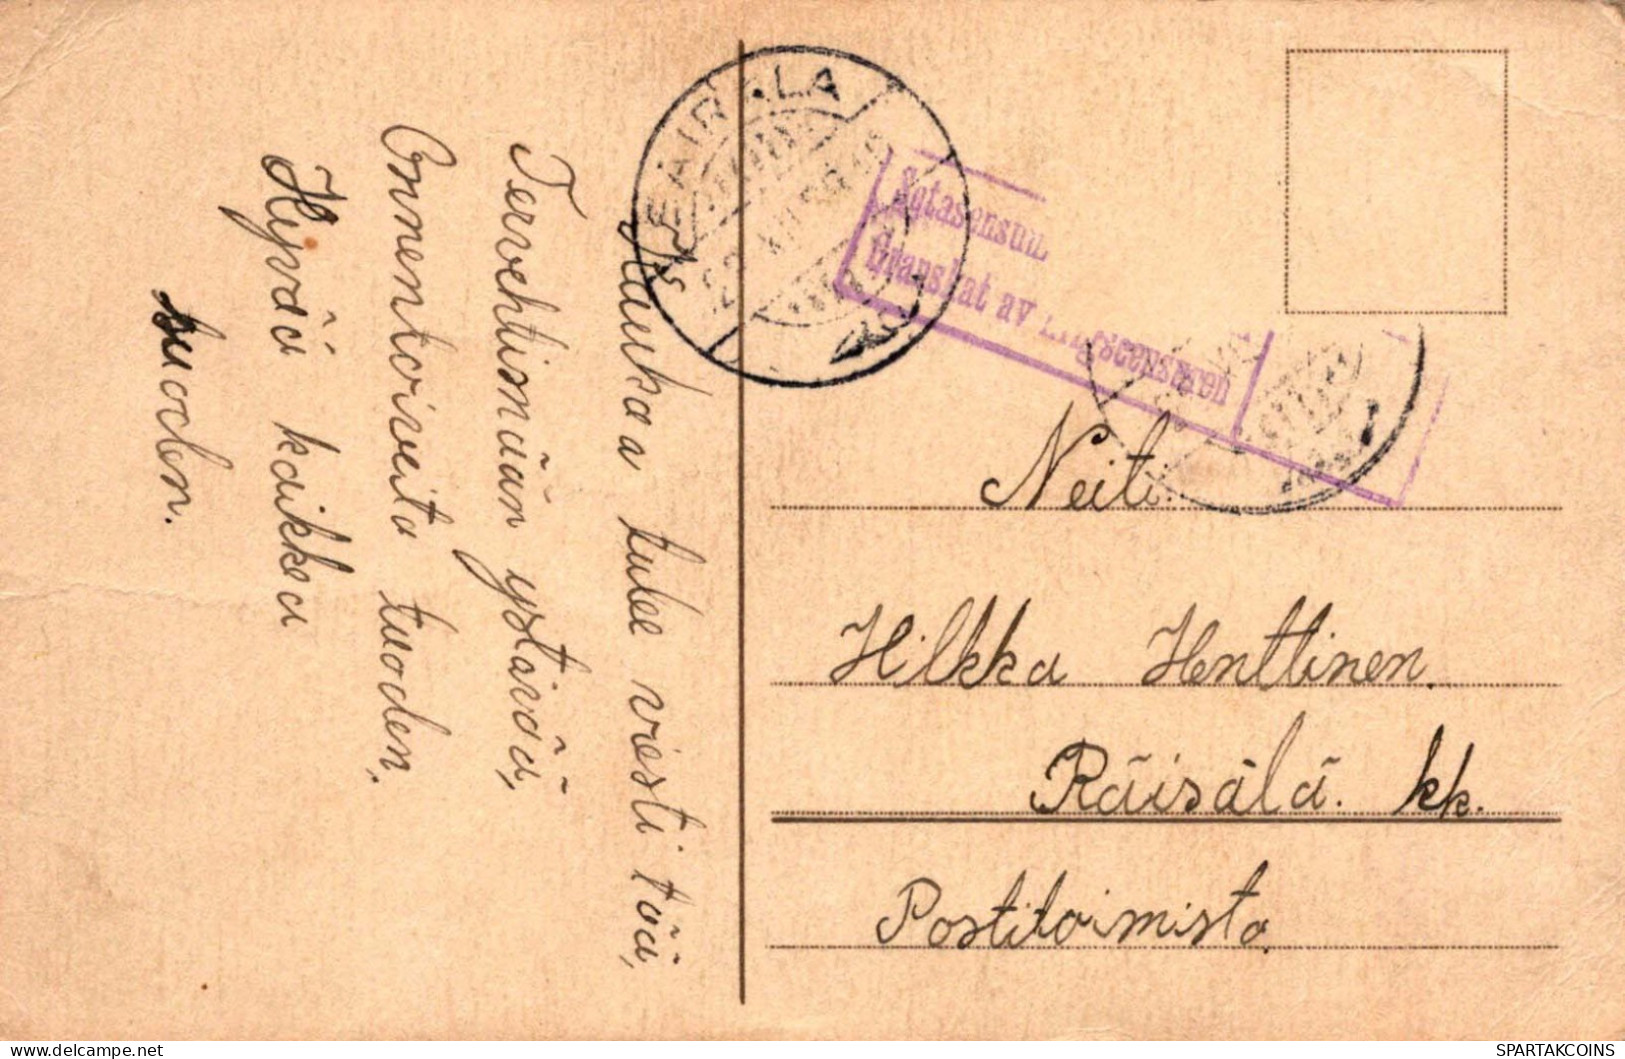 Kaukaa tulee viesti tää,
Tervehtimään ystävää,
Onnentoiveita tuoden.
Hyvää kaikkea
suoden.
Sotasensuu
Granskat av Krigscensuren
Neiti
Hilkka Henttinen.
Räisälä. kk.
Postitoimisto.
SPARTAKCOINS